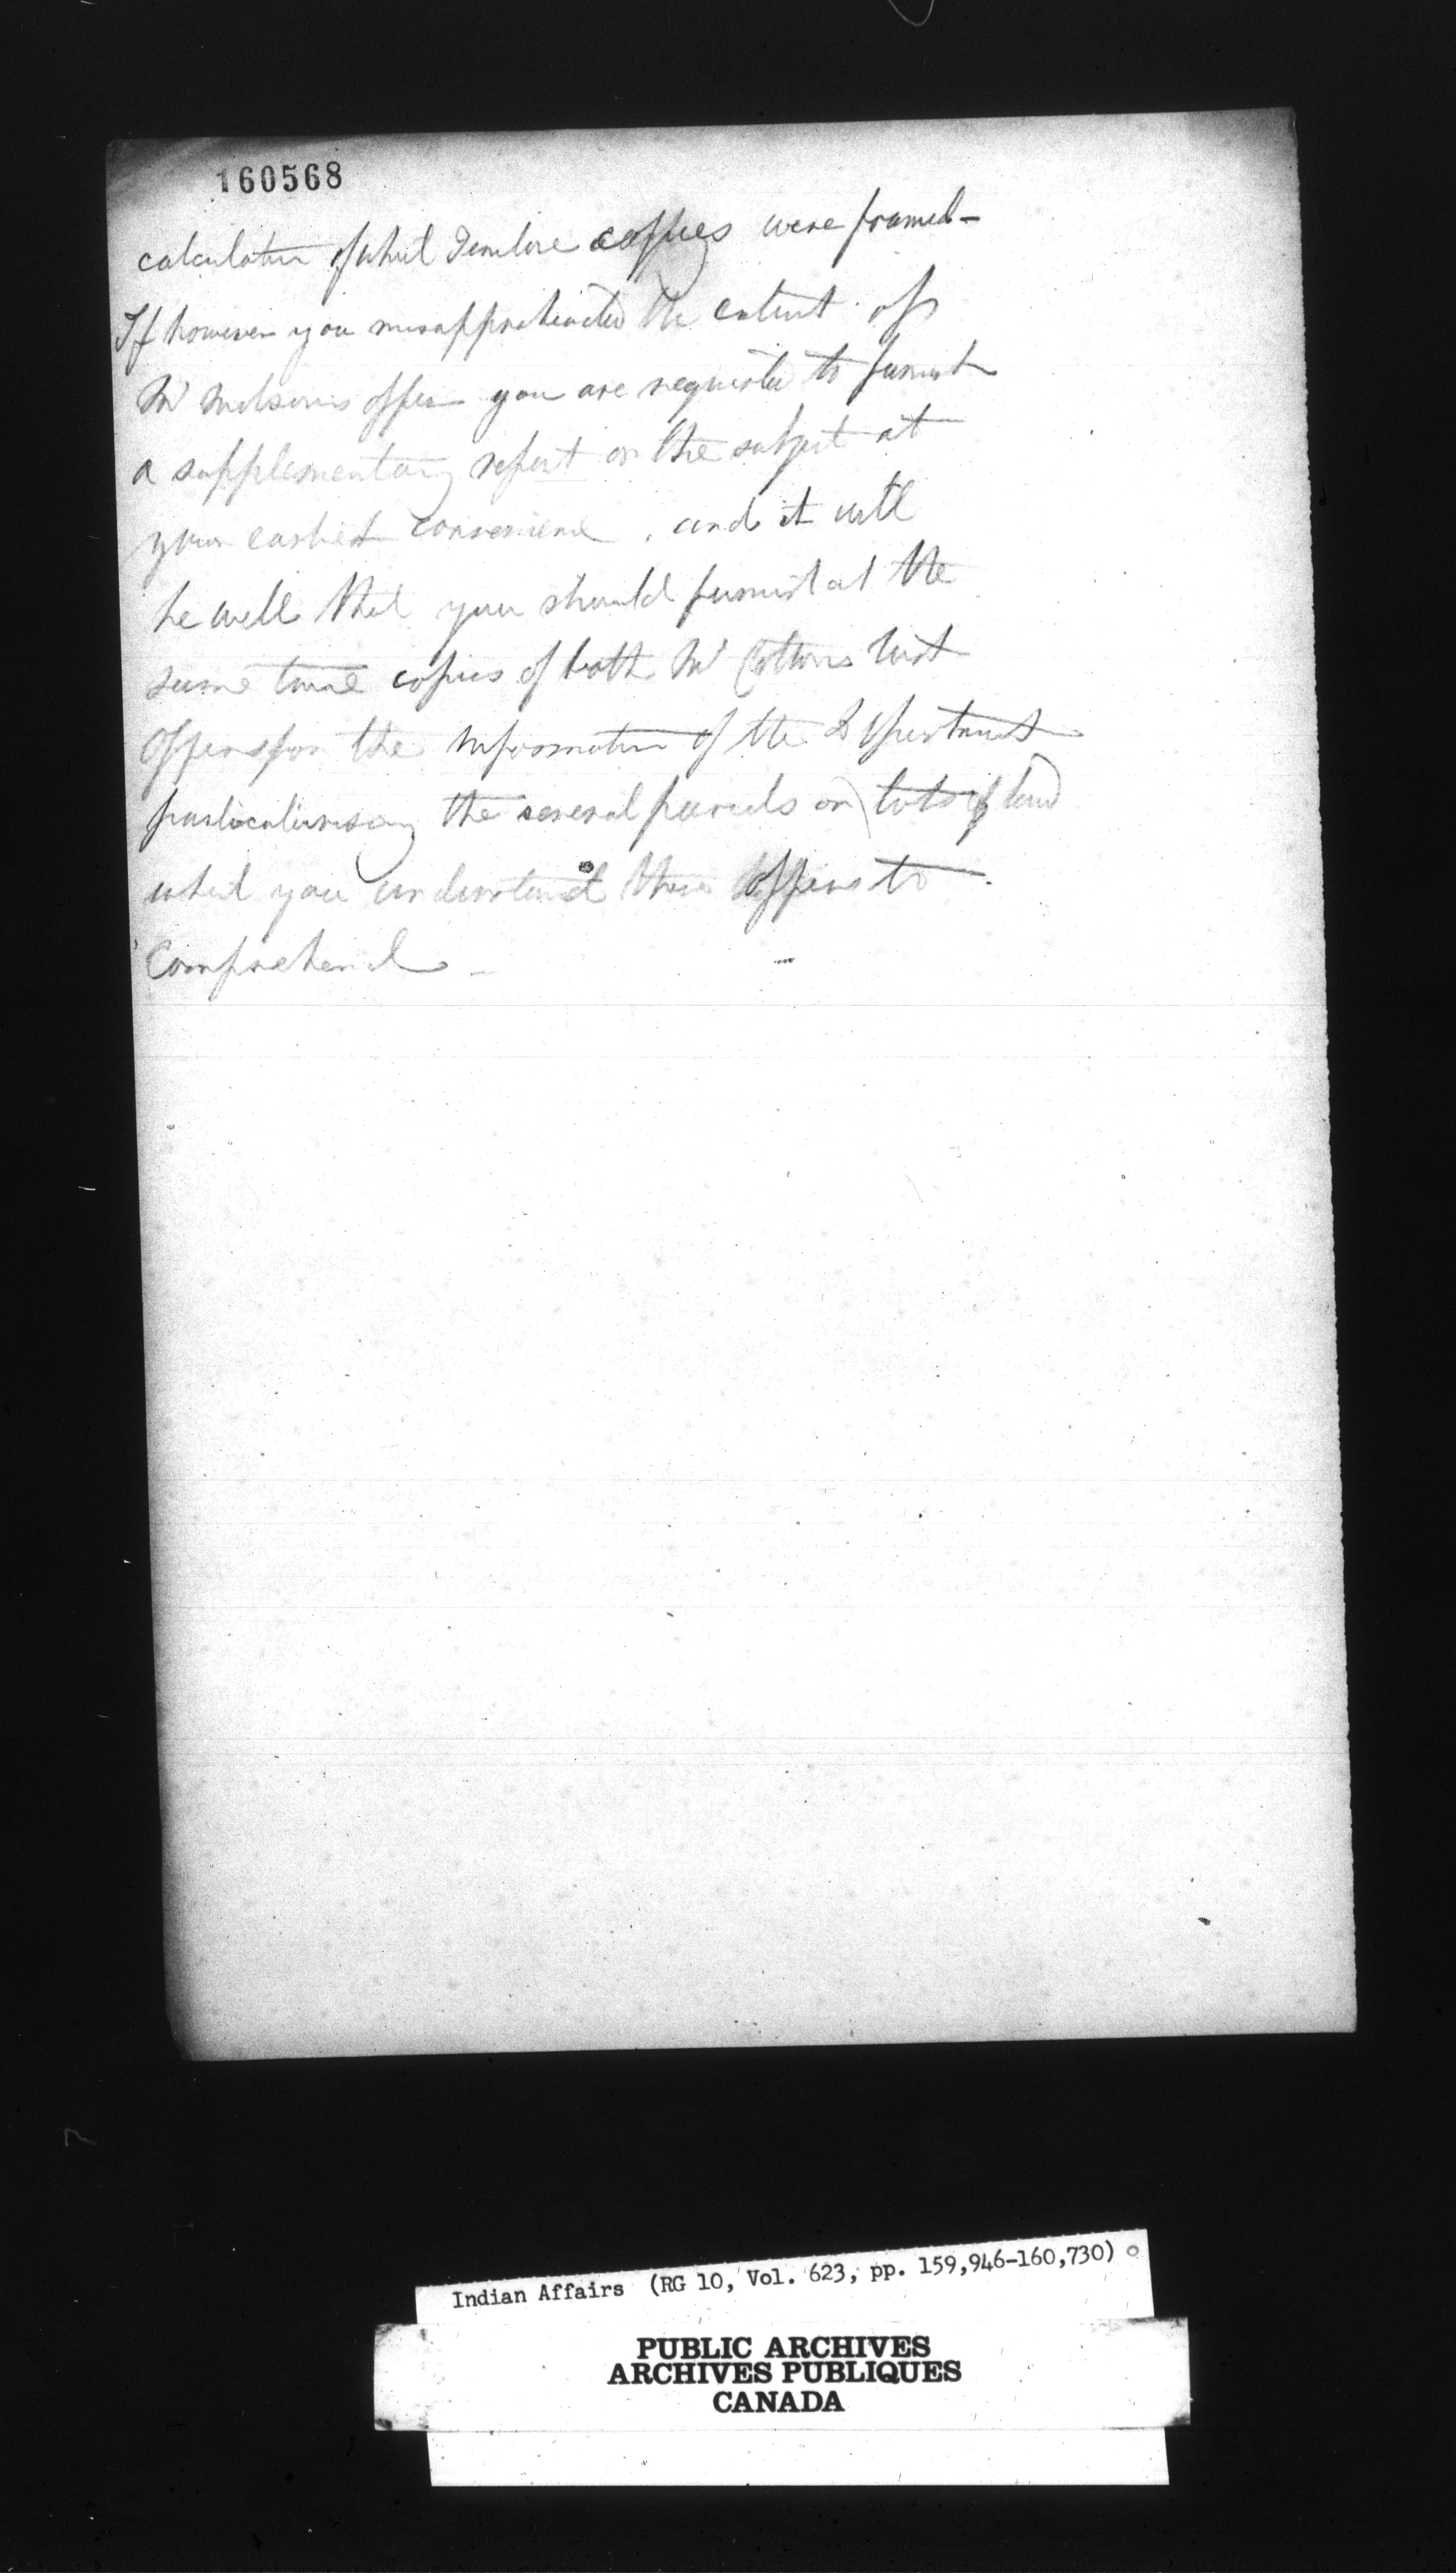 160568
calculation of which I enclose copies were framed -
If however you misapprehended the extent of
Mr offer you are requested to furnish
a supplementary report on the subject at
your earliest convenience, and it will
be well that you should furnish at the
same time copies of both Mr Cottons last
offers for the information of the Department
particularising the several parcels or lots of land
which you understand these offers to
Comprehend -
Indian Affairs (RG 10, Vol. 623, pp. 159,946-160,730)
PUBLIC ARCHIVES
ARCHIVES PUBLIQUES
CANADA